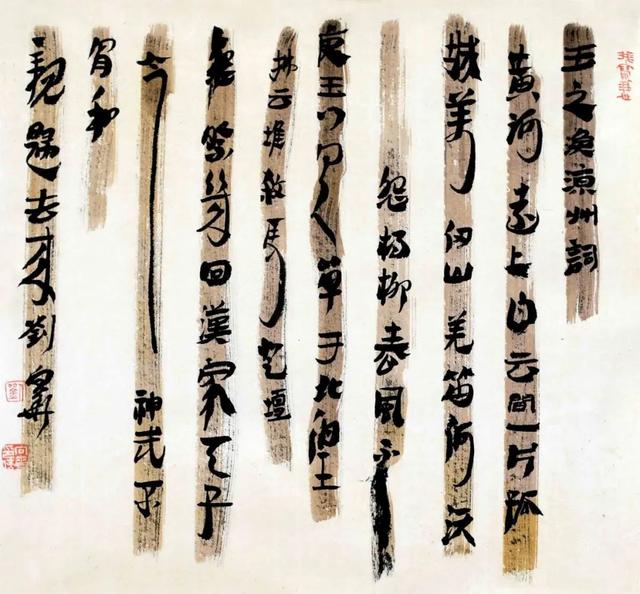 王之渙涼州詞
黃河遠上白云間一片孤
城萬仞山羌笛何須
怨楊柳春風不
度玉门关單于北望
拂云堆殺馬登壇
祭幾回漢家天子
今神武不
肯和
親歸去來劉